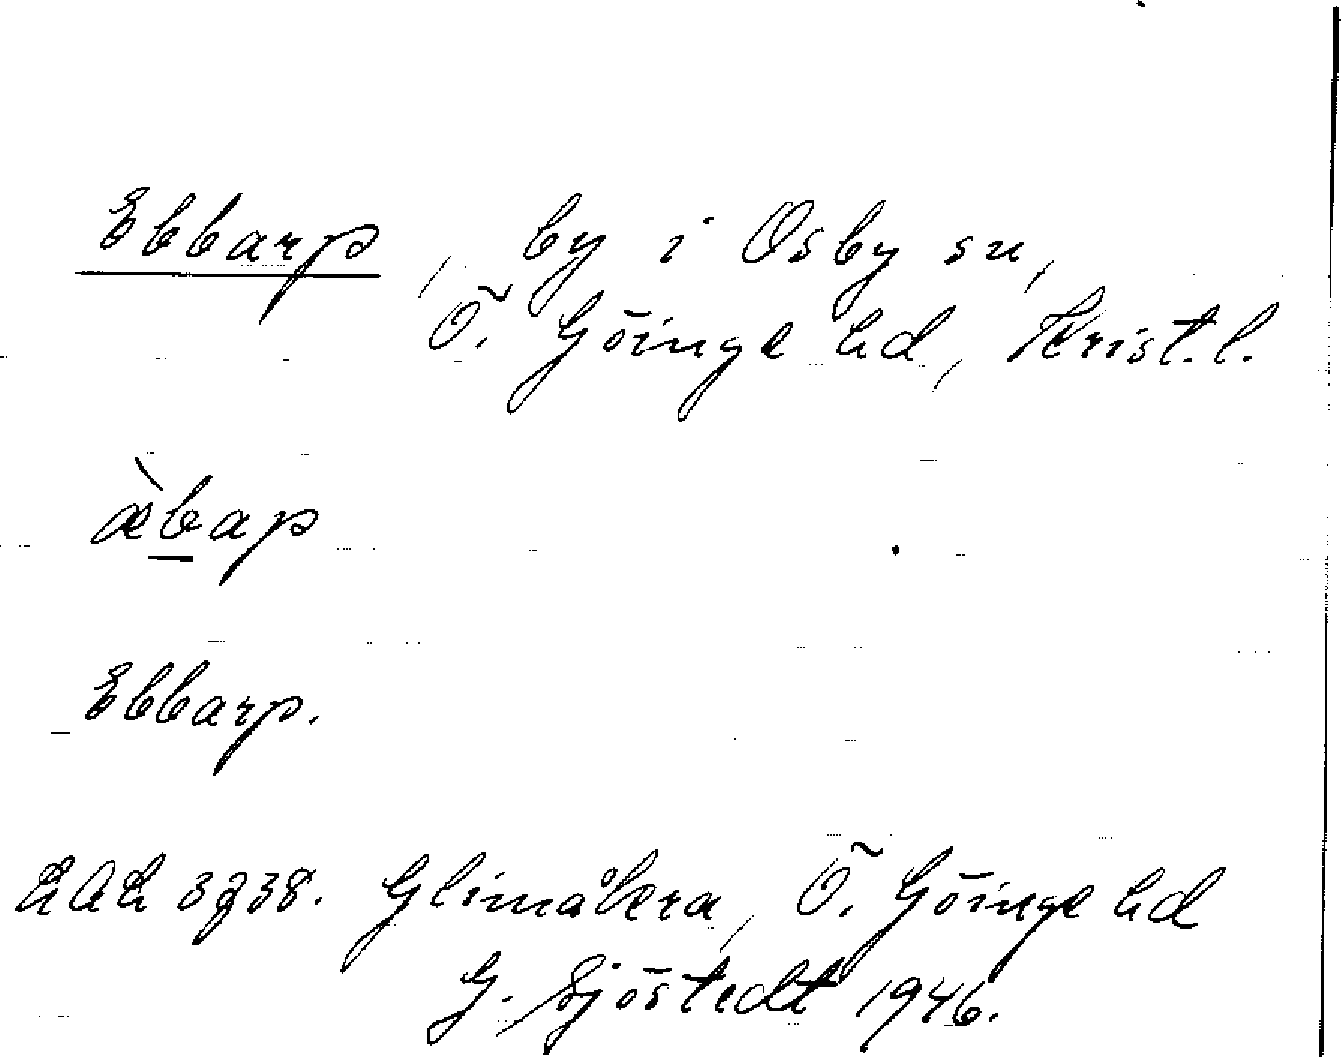 Ebbarp, by i Osby sn,
Ö. Göinge hd, Krist. l.
æ̀bap
Ebbarp.
LAL 3738. Glimåkra, Ö. Göinge hd
G. Sjöstedt 1946.